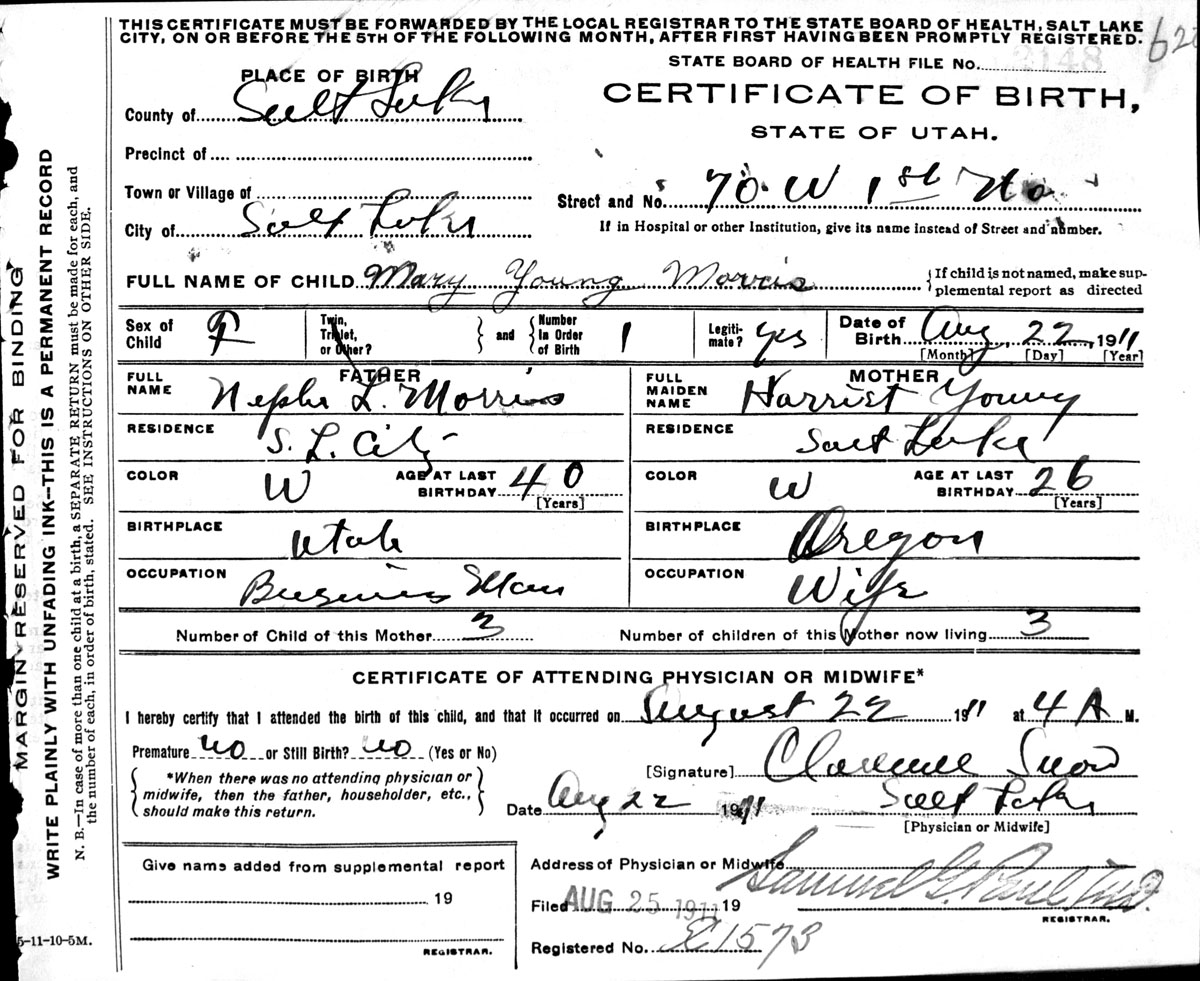 THIS CERTIFICATE MUST BE FORWARDED BY THE LOCAL REGISTRAR TO THE STATE BOARD OF HEALTH, SALT LAKE
CITY, ON OR BEFORE THE 5TH OF THE FOLLOWING MONTH, AFTER FIRST HAVING BEEN PROMPTLY REGISTERED.
STATE BOARD OF HEALTH FILE No. 2148
PLACE OF BIRTH
CERTIFICATE OF BIRTH,
STATE OF UTAH.
County of Salt Lake
Precinct of
Town or Village of
Street and No. 70 W 1st No
City of Salt Lake
If in Hospital or other Institution, give its name instead of Street and number.
FULL NAME OF CHILD Mary Young Morris
{If child is not named, make sup-
plemental report as directed
Sex of Child F
Twin, Triplet, or Other? } and { Number in Order of Birth 1
Legiti-mate? yes
Date of Birth Aug 22, 1911
[Month] [Day] [Year]
FATHER
FULL NAME Nephi L. Morris
RESIDENCE S. L. City
COLOR W AGE AT LAST BIRTHDAY 40
[Years]
BIRTHPLACE Utah
OCCUPATION Business Man
MOTHER
FULL MAIDEN NAME Harriet Young
RESIDENCE Salt Lake
COLOR W AGE AT LAST BIRTHDAY 26
[Years]
BIRTHPLACE Oregon
OCCUPATION Wife
Number of Child of this Mother 3 Number of children of this Mother now living 3
CERTIFICATE OF ATTENDING PHYSICIAN OR MIDWIFE*
I hereby certify that I attended the birth of this child, and that it occurred on August 22 1911 at 4 A M.
Premature no or Still Birth? no (Yes or No)
{ *When there was no attending physician or
midwife, then the father, householder, etc.,
should make this return. }
[Signature] Clarence Snow
Date Aug 22 1911 Salt Lake
[Physician or Midwife]
Give name added from supplemental report
19
REGISTRAR.
Address of Physician or Midwife
Filed AUG 25 1911 19 Samuel G. Paul, M.D.
REGISTRAR.
Registered No. E1573
MARGIN RESERVED FOR BINDING
WRITE PLAINLY WITH UNFADING INK—THIS IS A PERMANENT RECORD
N. B.—In case of more than one child at a birth, a SEPARATE RETURN must be made for each, and
the number of each, in order of birth, stated. SEE INSTRUCTIONS ON OTHER SIDE.
5-11-10-5M.